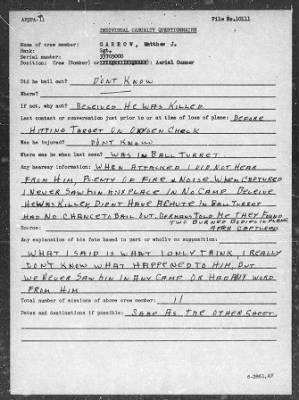 AFPPA-11 File No.10111
INDIVIDUAL CASUALTY QUESTIONNAIRE
Name of crew member: GARROW, Matthew J.
Rank: Sgt.
Serial number: 33705005
Position: Crew (Bomber) Aerial Gunner
Did he bail out? DONT KNOW
Where?
If not, why not? BELEIVE HE WAS KILLED
Last contact or conversation just prior to or at time of loss of plane: BEFORE
HITTING TARGET ON OXYGEN CHECK
Was he injured? DONT KNOW
Where was he when last seen? WAS IN BALL TURRET
Any hearsay information: WHEN ATTACKED I DID NOT HEAR
FROM HIM, PLENTY OF FIRE & NOISE WHEN CAPTURED
I NEVER SAW HIM ANYPLACE IN NO CAMP BELEIVE
HE WAS KILLED, DIDNT HAVE A CHUTE IN BALL TURRET
HAS NO CHANCE TO BAIL OUT. GERMANS TOLD ME THEY FOUND
TWO BURNED BODIES IN PLANE
Source: AFTER CAPTURED
Any explanation of his fate based in part or wholly on supposition:
WHAT I SAID IS WHAT I ONLY THINK, I REALLY
DON'T KNOW WHAT HAPPENED TO HIM, BUT
WE NEVER SAW HIM IN ANY CAMP OR HAD ANY WORD
FROM HIM
Total number of missions of above crew member: 11
Dates and destinations if possible: SAME AS THE OTHER SHEET
6-3861,AF